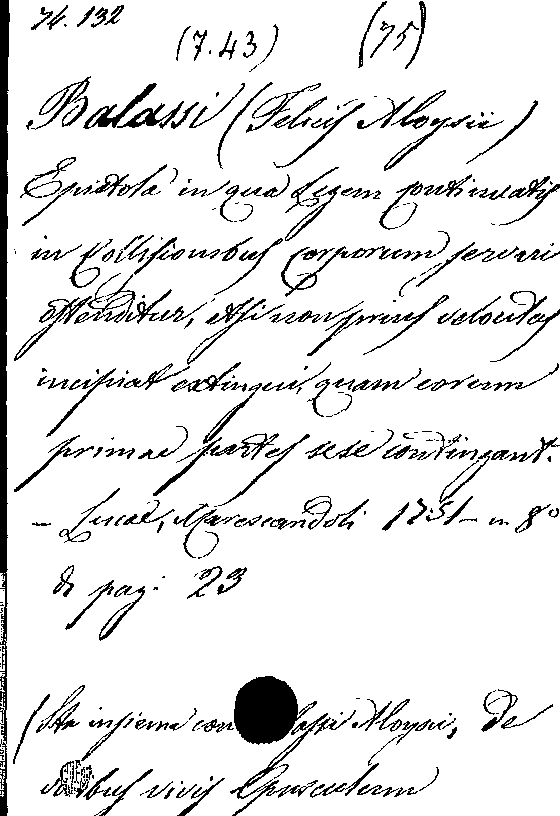 74.132
(7.43) (75)
Balassi (Felicis Aloysii)
Epistola in qua Legem continuatis
in Collisionibus Corporum servari
ostenditur, etsi non prius velocitas
incipiat extingui, quam eorum
primae partes sese contingant.
- Lucae, Marescandoli 1751 - in 8º
di pag: 23
(Sta insieme con Aloysii, De
vivis Opusculum